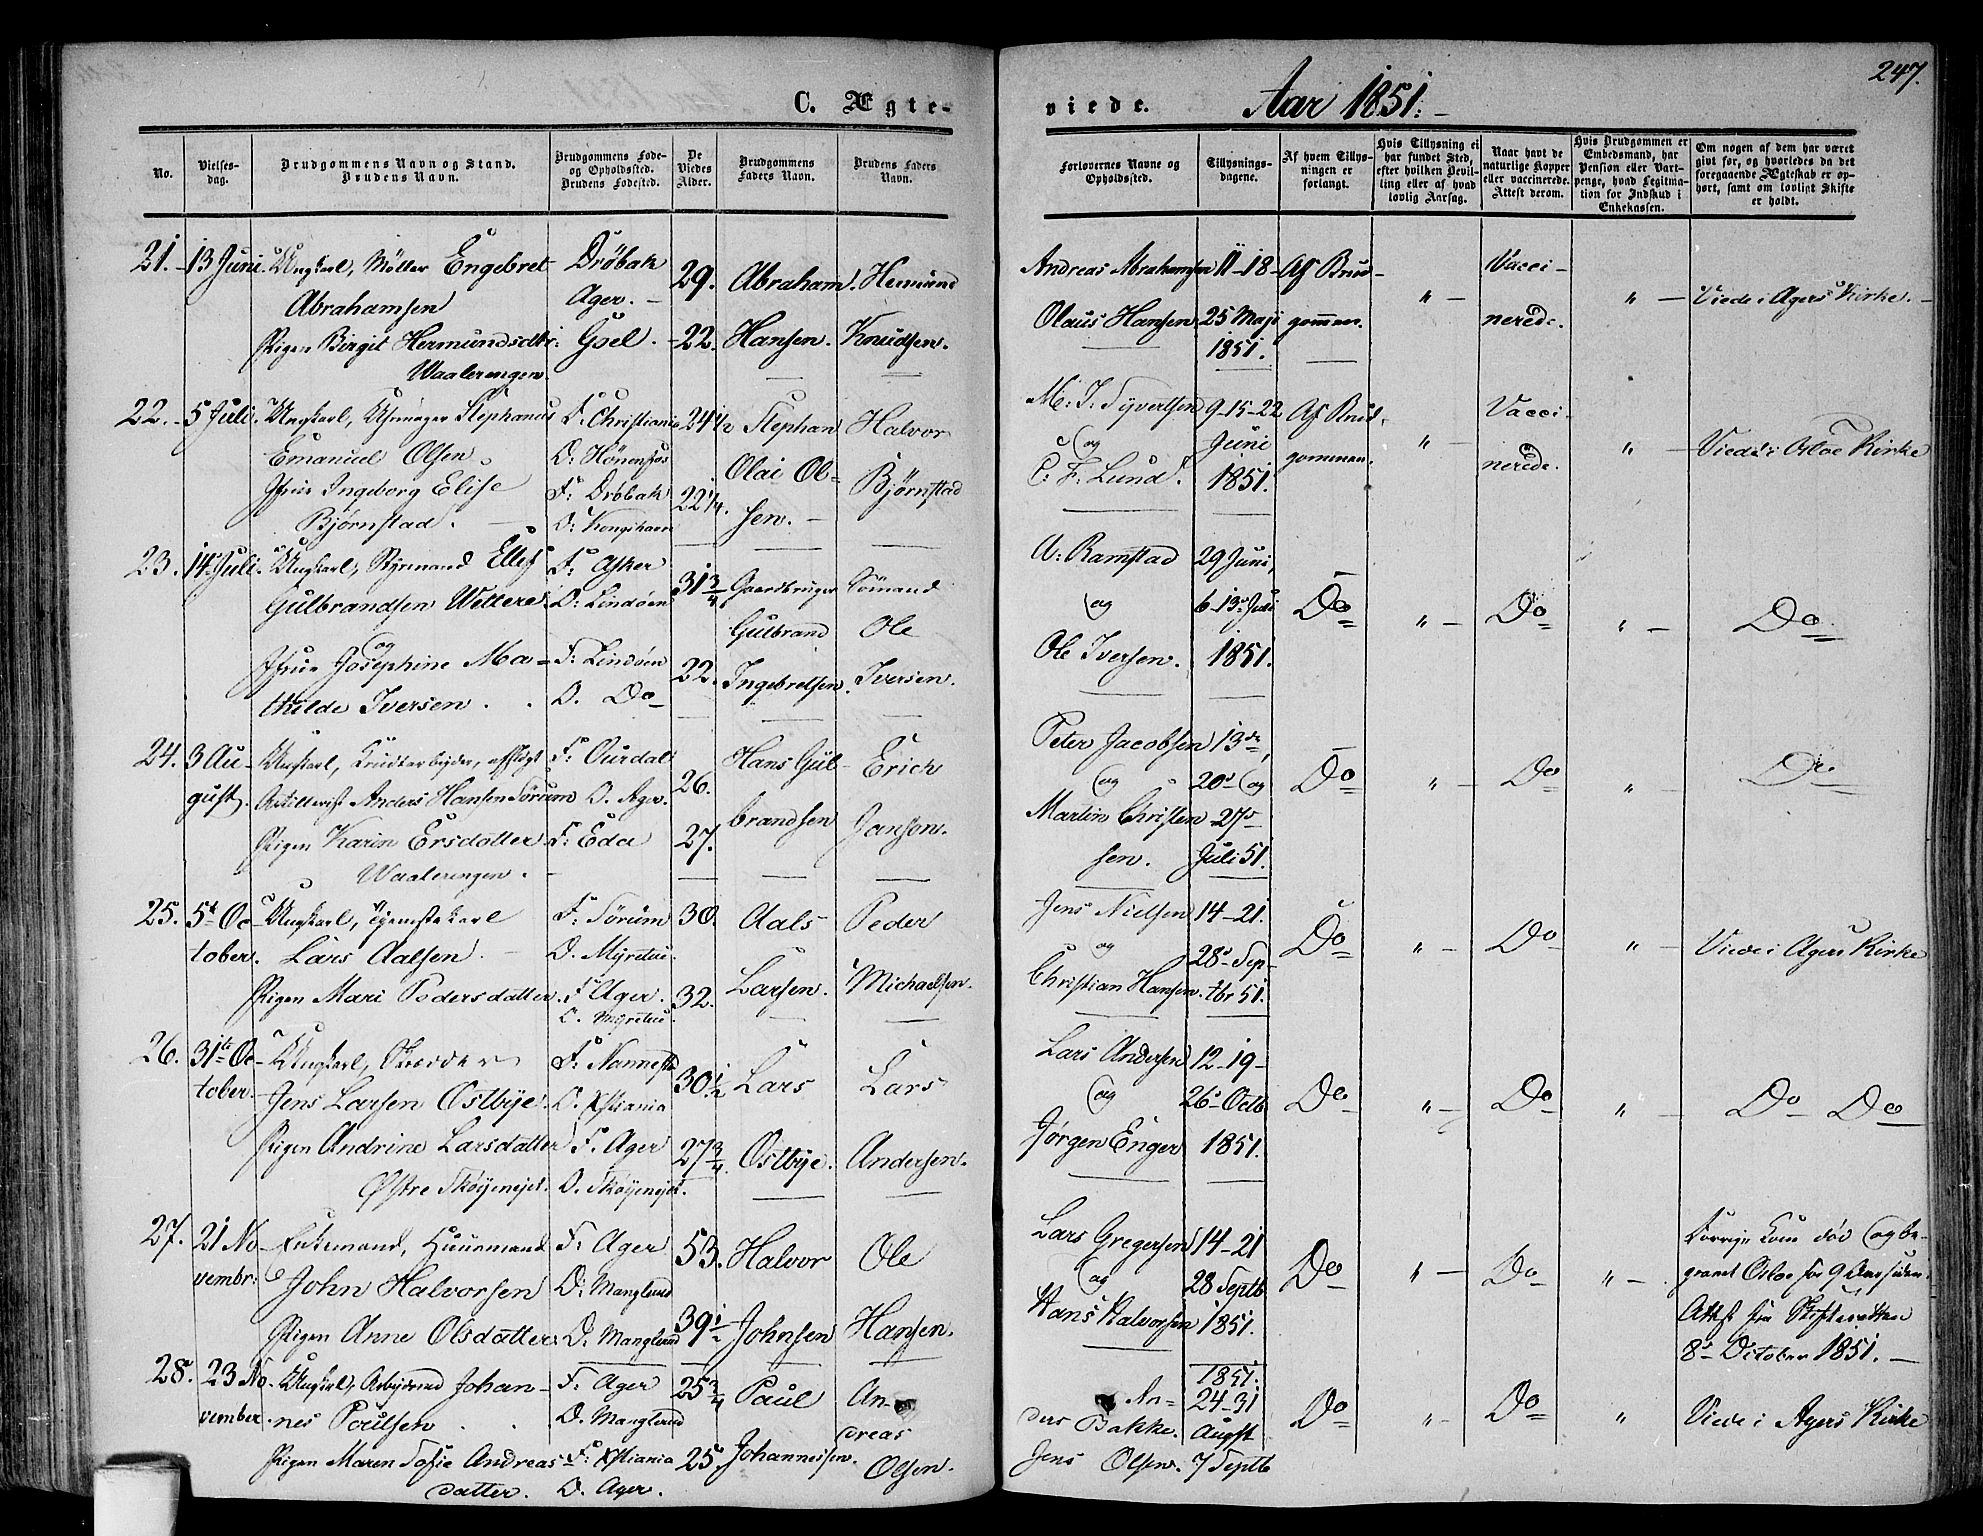 247.
C. Ægte-
viede. Aar 1851.
No.
Vielses-
dag.
Brudgommens Navn og Stand.
Brudens Navn.
Brudgommens Føde-
og Opholdssted.
Brudens Fødested.
De
Viedes
Alder.
Brudgommens
Faders Navn.
Brudens Faders
Navn.
Forlovernes Navne og
Opholdssted.
Tillysnings-
dagene.
Af hvem Tillys-
ningen er
forlangt.
Hvis Tillysning ei
har fundet Sted,
efter hvilken Bevil-
ling eller af hvad
lovlig Aarsag.
Naar havt de
naturlige Kopper
eller vaccinerede.
Attest derom.
Hvis Brudgommen er
Embedsmand, har
Pension eller Vart-
penge, hvad Legitima-
tion for Indskud i
Enkekassen.
Om nogen af dem har været
gift før, og hvorledes da det
foregaaende Ægteskab er op-
hørt, samt om lovligt Skifte
er holdt.
21. 13 Juni. Ungkarl, Møller Engebret
Abrahamsen
Pigen Birgit Hermundsdtr:
Waalerengen.
Drøbak
Ager.
Goel.
29.
22.
Abraham
Hansen.
Hermund
Knudsen.
Andreas Abrahamsen
Olaus Hansen
11-18-
25 Maji
1851.
Af Brud-
gommen.
" -
Vacci-
nerede.
" -
Viede i Agers Kirke.
22. 5 Juli. Ungkarl, Uhrmager Stephanus
Emanuel Olsen
Jfrue Ingeborg Elise
Bjørnstad.
F. Christiania
O: Hønenfos
F: Drøbak
O: Kongshavn
24 1/2
22 1/4.
Stephan
Olai Ol-
sen.
Halvor
Bjørnstad
M: J. Syvertsen
og
C. F. Lund.
9-15-22
Juni
1851.
Af Brud-
gommen.
" -
Vacci-
nerede.
" -
Viede i Osloe Kirke
23. 14 Juli. Ungkarl, Styrmand Ellef
Gulbrandsen Wettere
og
Jfrue Josephine Ma-
thilde Iversen.
F: Asker
O: Lindøen
F. Lindøen
O. Do
31 3/4
22.
Gaardbruger
Gulbrand
Ingebretsen
Sømand
Ole
Iversen.
A: Ramstad
og
Ole Iversen.
29 Juni,
6-13 Juli
1851.
Do
" -
Do
" -
Do
24. 3 Au-
gust.
Ungkarl, Krudtarbejder, afskediget
Artillerist Anders Hansen Sørum
Pigen Karin Ersdatter
Waalerengen.
F: Ourdal
O. Ager.
F: Eda
26.
27.
Hans Gul-
brandsen
Erich
Janson.
Peter Jacobsen
og
Martin Christen-
sen.
13de,
20 og
27
Juli 51.
Do
" -
Do
" -
Do
25. 5t Oc-
tober.
Ungkarl, Tjenestekarl
Lars Aalsen.
Pigen Mari Pedersdatter.
F. Sørum
O. Myretue.
F. Ager.
O. Myretue.
30.
32.
Aals
Larsen.
Peder
Michaelsen.
Jens Nielsen
og
Christian Hansen.
14-21.
28 Sep-
tbr 51.
Do
" -
Do
" -
Viede i Agers Kirke
26. 31te Oc-
tober
Ungkarl, Skræder
Jens Larsen Ostbye.
Pigen Andrine Larsdatter
Østre Skøyenejet.
F. Nannestd
O. Xstiania
F. Ager
O. Skøyenejet.
30 1/2
27 3/4
Lars
Ostbye.
Lars
Andersen.
Lars Andersen
og
Jørgen Enger
12-19-
26 Octb
1851.
Do
" -
Do
" -
Do Do
27. 21 No-
vembr:
Enkemand, Huusmand
John Halvorsen
Pigen Anne Olsdatter
F. Ager
O: Manglerud
O. Manglerud
53.
39 1/2
Halvor
Johnsen
Ole
Hansen.
Lars Gregersen
og
Hans Halvorsen
14-21
28 Septb
1851.
Do
" -
Do
" -
Forrige Kone død og be-
gravet Osloe for 9 Aar siden.
Attest fra Skifteretten
8 October 1851.
28. 23 No-
vember
Ungkarl, Arbejdsmd Johan-
nes Poulsen
Pigen Maren Sofie Andreas-
datter.
F. Ager
O. Manglerud
F: Xstiania
O. Ager.
25 3/4
25.
Paul
Johannessen.
An-
dreas
Olsen.
An-
ders Bakke.
Jens Olsen.
1851.
24-31
August
7 Septb
Do
" -
Do
"
Viede i Agers Kirke